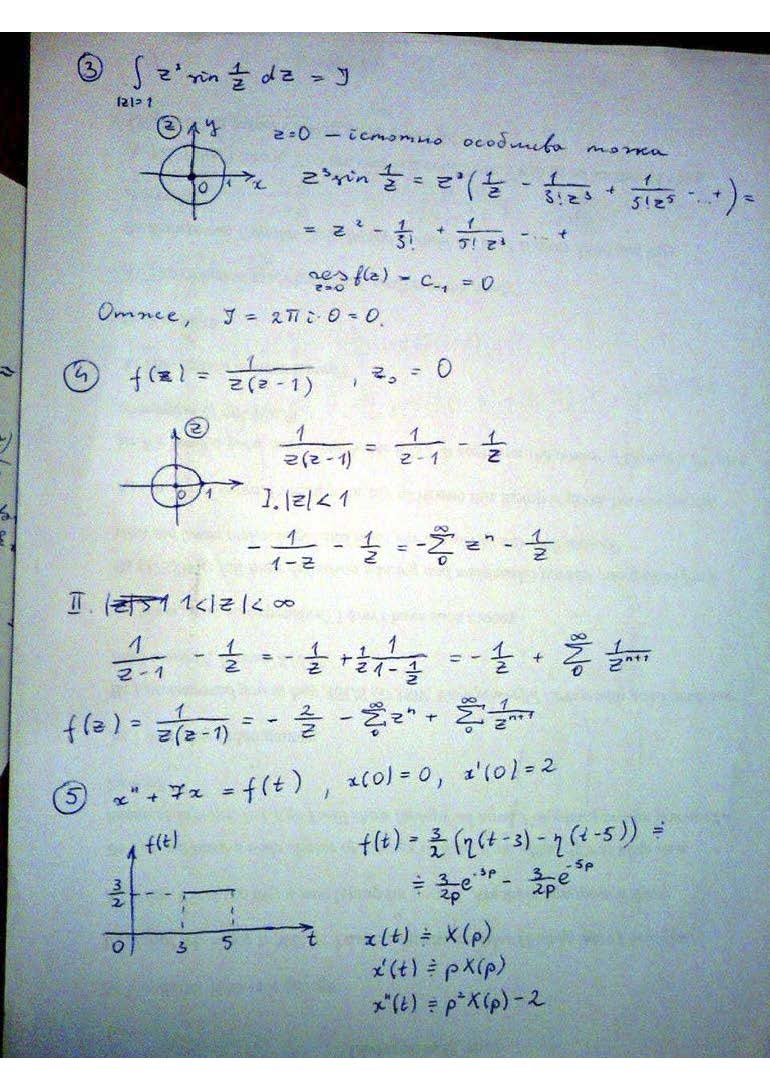 ③ ∫ z³ sin 1/z dz = J
|z|=1
z y 0 1 x
z=0 – істотно особлива точка
z³ sin 1/z = z³ (1/z - 1/3!z³ + 1/5!z⁵ - ...+) =
= z² - 1/3! + 1/5!z³ - ...+
res f(z) = C₋₁ = 0
z=0
Отже, J = 2πi·0 = 0.
④ f(z) = 1/z(z-1) , z₀ = 0
z 0 1
1/z(z-1) = 1/z-1 - 1/z
I. |z| < 1
- 1/1-z - 1/z = -∑₀^∞ zⁿ - 1/z
II. |z|>1 1<|z|<∞
1/z-1 - 1/z = - 1/z + 1/z 1/1-1/z = - 1/z + ∑₀^∞ 1/zⁿ⁺¹
f(z) = 1/z(z-1) = - 2/z - ∑₀^∞ zⁿ + ∑₀^∞ 1/zⁿ⁺¹
⑤ x" + 7x = f(t) , x(0) = 0, x'(0) = 2
f(t)
3/2
0 3 5 t
f(t) = 3/2 (η(t-3) - η(t-5)) ≑
≑ 3/2p e⁻³ᵖ - 3/2p e⁻⁵ᵖ
x(t) ≑ X(p)
x'(t) ≑ pX(p)
x"(t) ≑ p²X(p) - 2